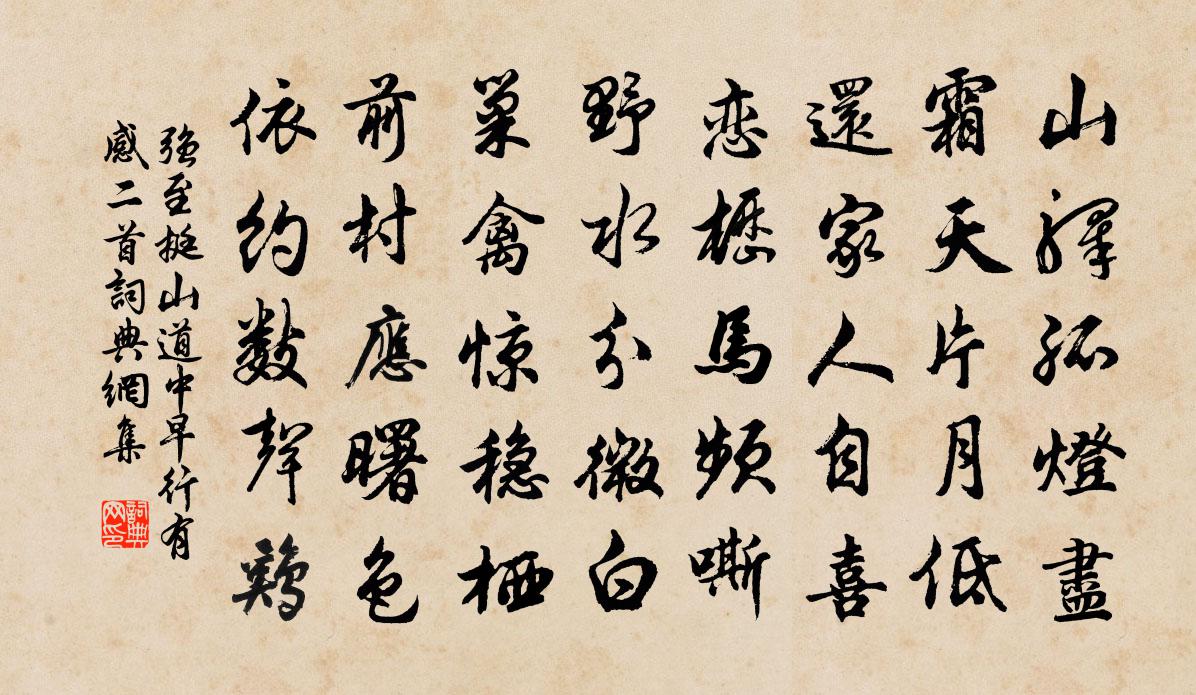 山驛孤燈盡
霜天片月低
還家人自喜
恋櫪馬頻嘶
野水分微白
巢禽惊稳栖
前村應曙色
依约数聲鷄
強至挺山道中早行有
感二首詞典網集
詞典
网印